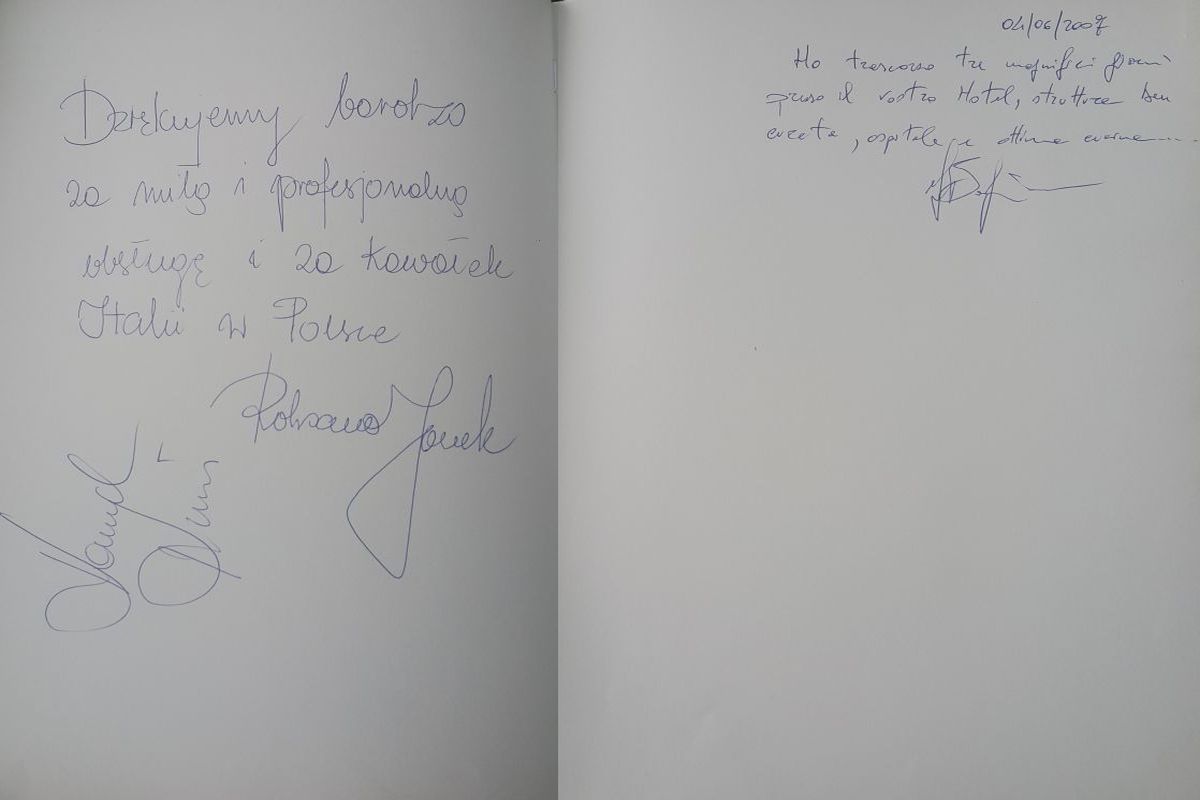 Dziękujemy bardzo
za miłą i profesjonalną
obsługę i za kawałek
Italii w Polsce
Roksana Janek
04/06/2007
Ho trascorso tre magnifici giorni
presso il vostro Hotel, struttura ben
curata, ospitale e ottima cucina